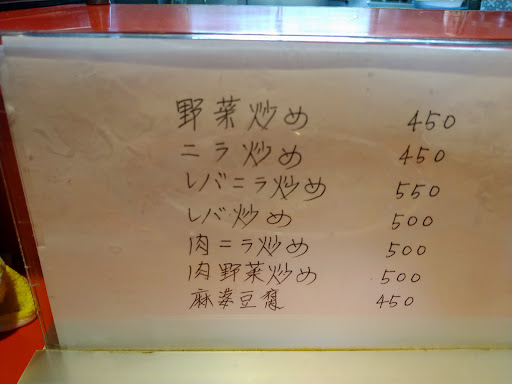 野菜炒め 450
ニラ炒め 450
レバニラ炒め 550
レバ炒め 500
肉ニラ炒め 500
肉野菜炒め 500
麻婆豆腐 450